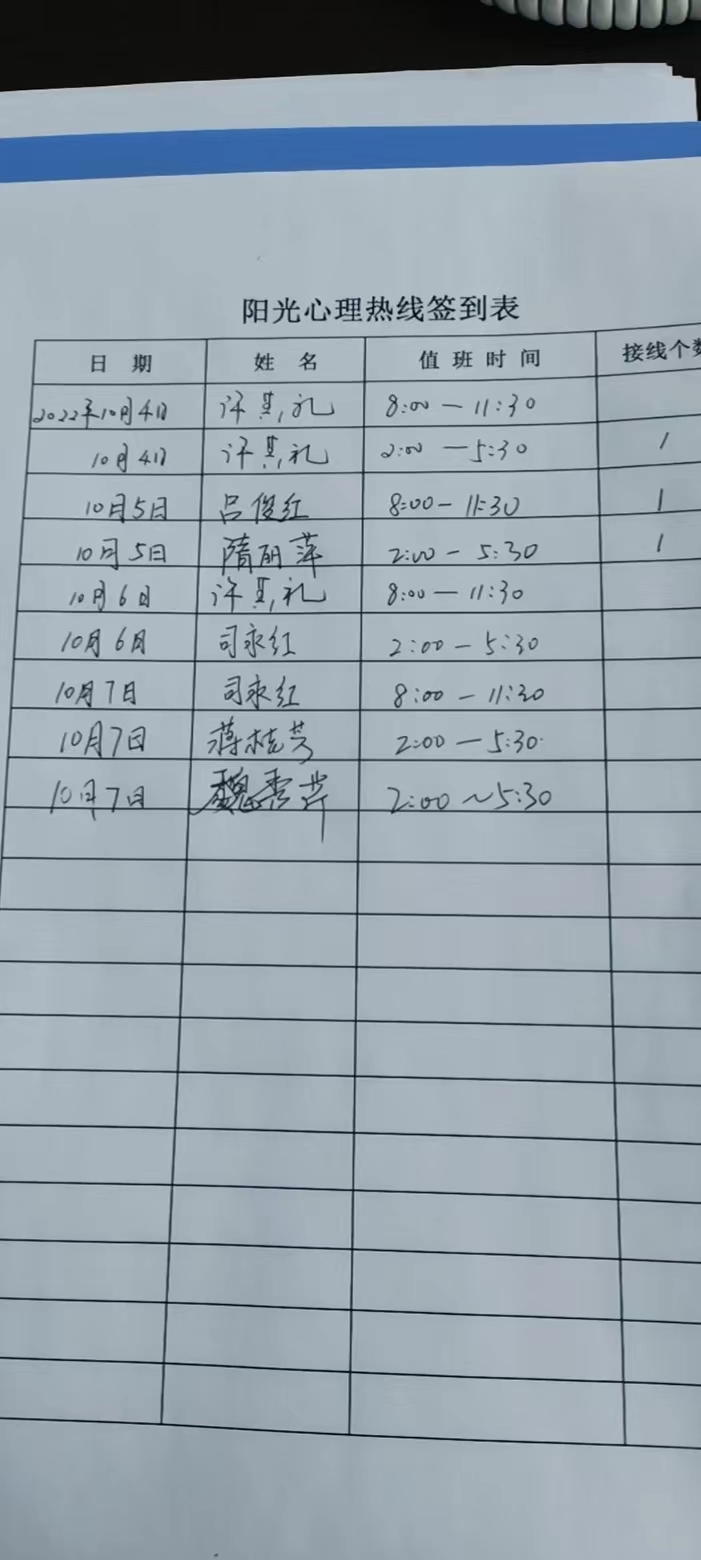 阳光心理热线签到表
日 期 姓 名 值 班 时 间 接线个数
2022年10月4日 许其礼 8:00 — 11:30
10月4日 许其礼 2:00 — 5:30 1
10月5日 吕俊红 8:00 - 11:30 1
10月5日 隋丽萍 2:00 - 5:30 1
10月6日 许其礼 8:00 — 11:30
10月6日 司永红 2:00 — 5:30
10月7日 司永红 8:00 — 11:30
10月7日 蒋桂芳 2:00 — 5:30
10月7日 魏秀萍 2:00 ~ 5:30